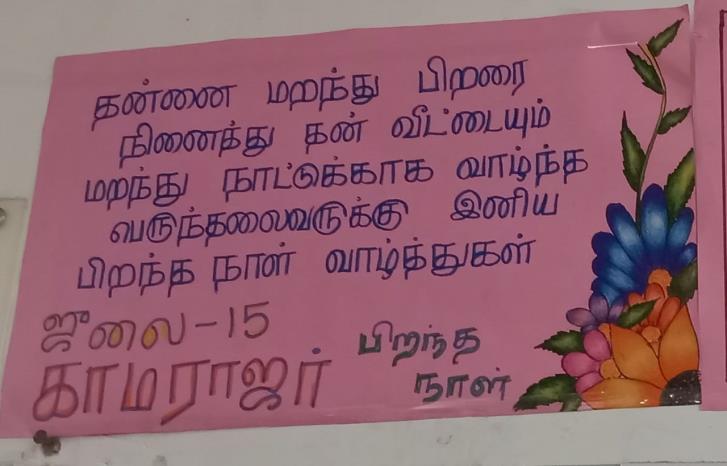 தன்னை மறந்து பிறரை
நினைத்து தன் வீட்டையும்
மறந்து நாட்டுக்காக வாழ்ந்த
பெருந்தலைவருக்கு இனிய
பிறந்த நாள் வாழ்த்துகள்
ஜுலை-15
காமராஜர் பிறந்த
நாள்